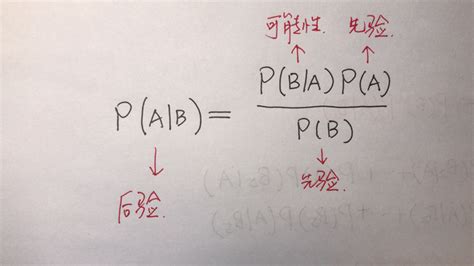 可能性. 先验.
P(B|A)P(A)
P(A|B)=
P(B)
先验.
后验.